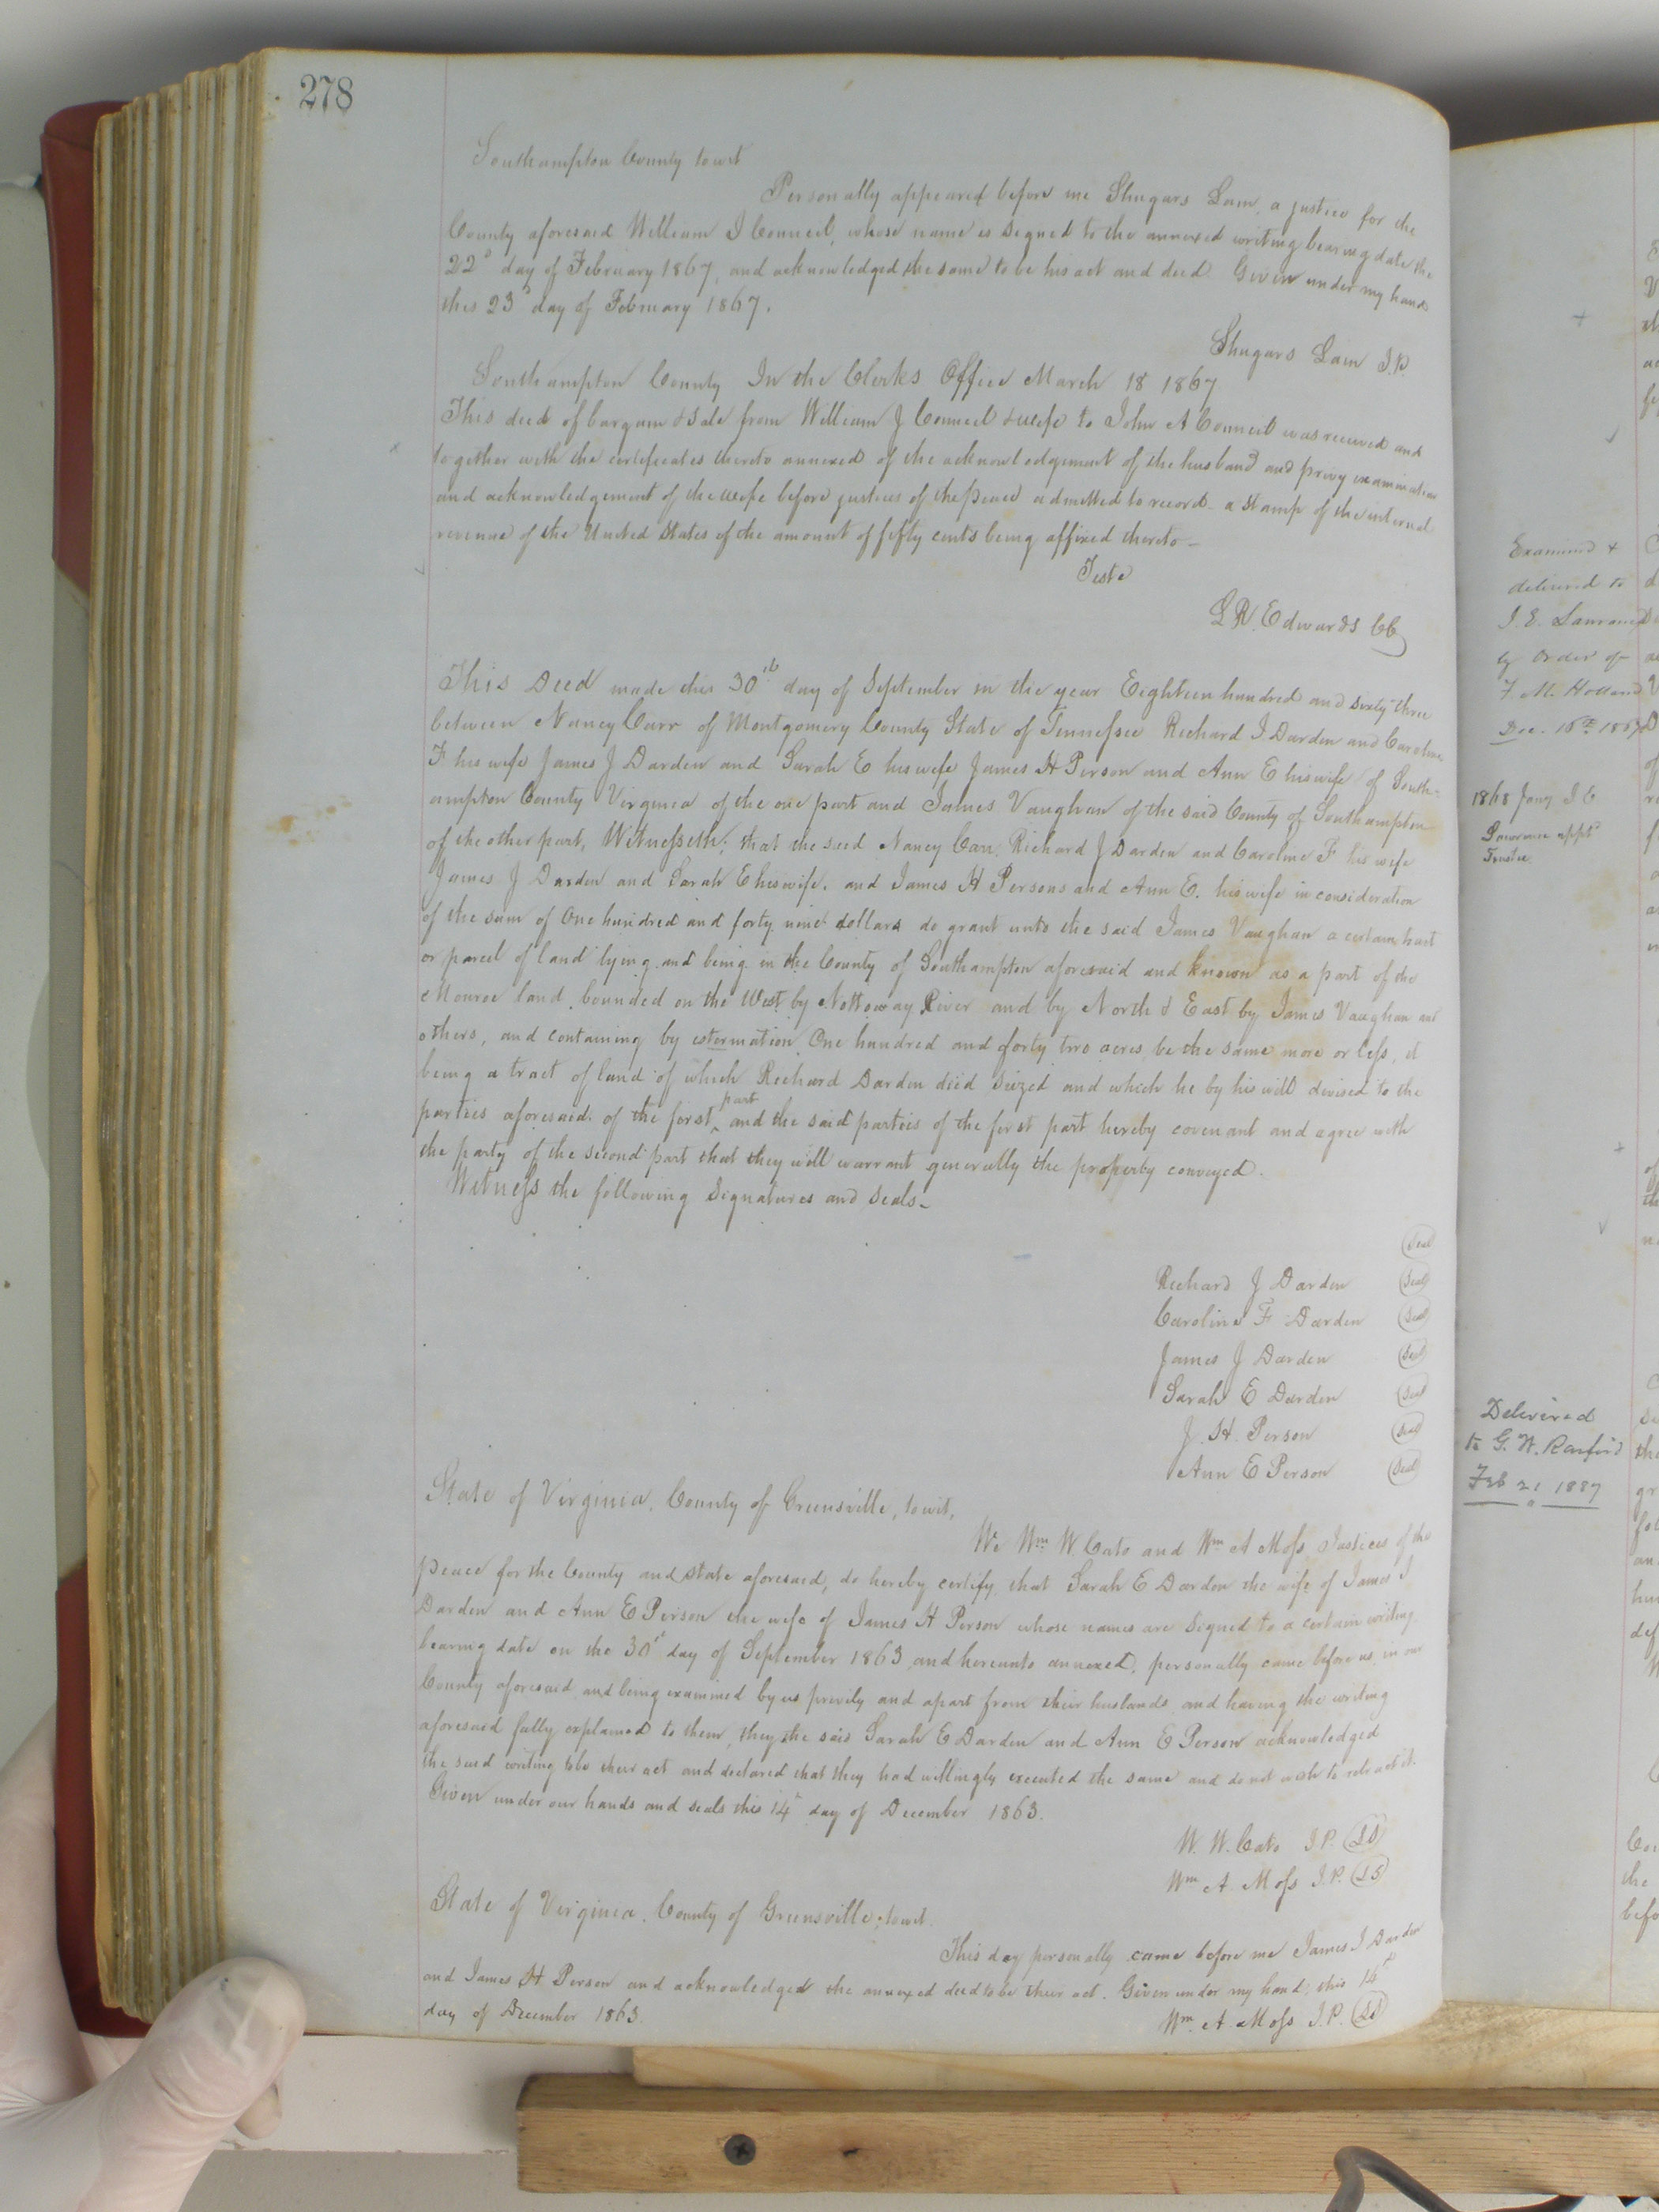 278
Southampton County towit
Personally appeared before me Shugars Lain, a justice for the
County aforesaid William J Council, whose name is signed to the annexed writing bearing date the
22d day of February 1867, and acknowledged the same to be his act and deed. Given under my hand
this 23d day of February 1867.
Shugars Lain J.P.
Southampton County In the Clerks Office March 18 1867
This deed of bargain & Sale from William J Council & wife to John A Council was received and
together with the certificates thereto annexed of the acknowledgement of the husband and privy examination
and acknowledgement of the wife before justices of the peace admitted to record - a stamp of the internal
revenue of the United States of the amount of fifty cents being affixed thereto -
Teste
L R. Edwards CC
This Deed made this 30th day of September in the year Eighteen hundred and sixty-three
between Nancy Carr of Montgomery County State of Tennessee Richard J. Darden and Caroline
F his wife James J Darden and Sarah E his wife James H Person and Ann E his wife of South-
ampton County Virginia of the one part and James Vaughan of the said County of Southampton
of the other part, Witnesseth; that the said Nancy Carr, Richard J Darden and Caroline F his wife
James J Darden and Sarah E his wife, and James H Persons and Ann E. his wife in consideration
of the sum of One hundred and forty nine dollars do grant unto the said James Vaughan a certain tract
or parcel of land lying and being in the County of Southampton aforesaid and known as a part of the
Monroe land bounded on the West by Nottoway River and by North & East by James Vaughan and
others, and containing by estermation One hundred and forty two acres be the same more or less, it
being a tract of land of which Richard Darden died seized and which he by his will devised to the
parties aforesaid of the first part and the said parties of the first part hereby covenant and agree with
the party of the second part that they will warrant generally the property conveyed.
Witness the following Signatures and Seals -
Seal
Richard J Darden Seal
Caroline F Darden Seal
James J Darden Seal
Sarah E Darden Seal
J. H. Person Seal
Ann E Person Seal
State of Virginia, County of Greensville, towit,
We Wm W. Cato and Wm A Moss Justices of the
peace for the County and state aforesaid, do hereby certify, that Sarah E Darden the wife of James J
Darden and Ann E Person the wife of James H Person whose names are signed to a certain writing
bearing date on the 30th day of September 1863 and hereunto annexed, personally came before us in our
County aforesaid and being examined by us privily and apart from their husbands and having the writing
aforesaid fully explained to them, they the said Sarah E Darden and Ann E Person acknowledged
the said writing to be their act and declared that they had willingly executed the same and do not wish to retract it.
Given under our hands and seals this 14th day of December 1863.
W. W. Cato J.P. LS
Wm A. Moss J.P. LS
State of Virginia. County of Greensville, towit.
This day personally came before me James J Darden
and James H Person and acknowledged the annexed deed to be their act. Given under my hand, this 14th
day of December 1863.
Wm A Moss J.P. LS
Examined &
delivered to
J. E. Lawrence
by Order of
F. M. Holland
Dec. 16th 1867
1868 Jany J. E
Lawrence appt
Trustee
Delivered
to G. W.
Feb 21 1887